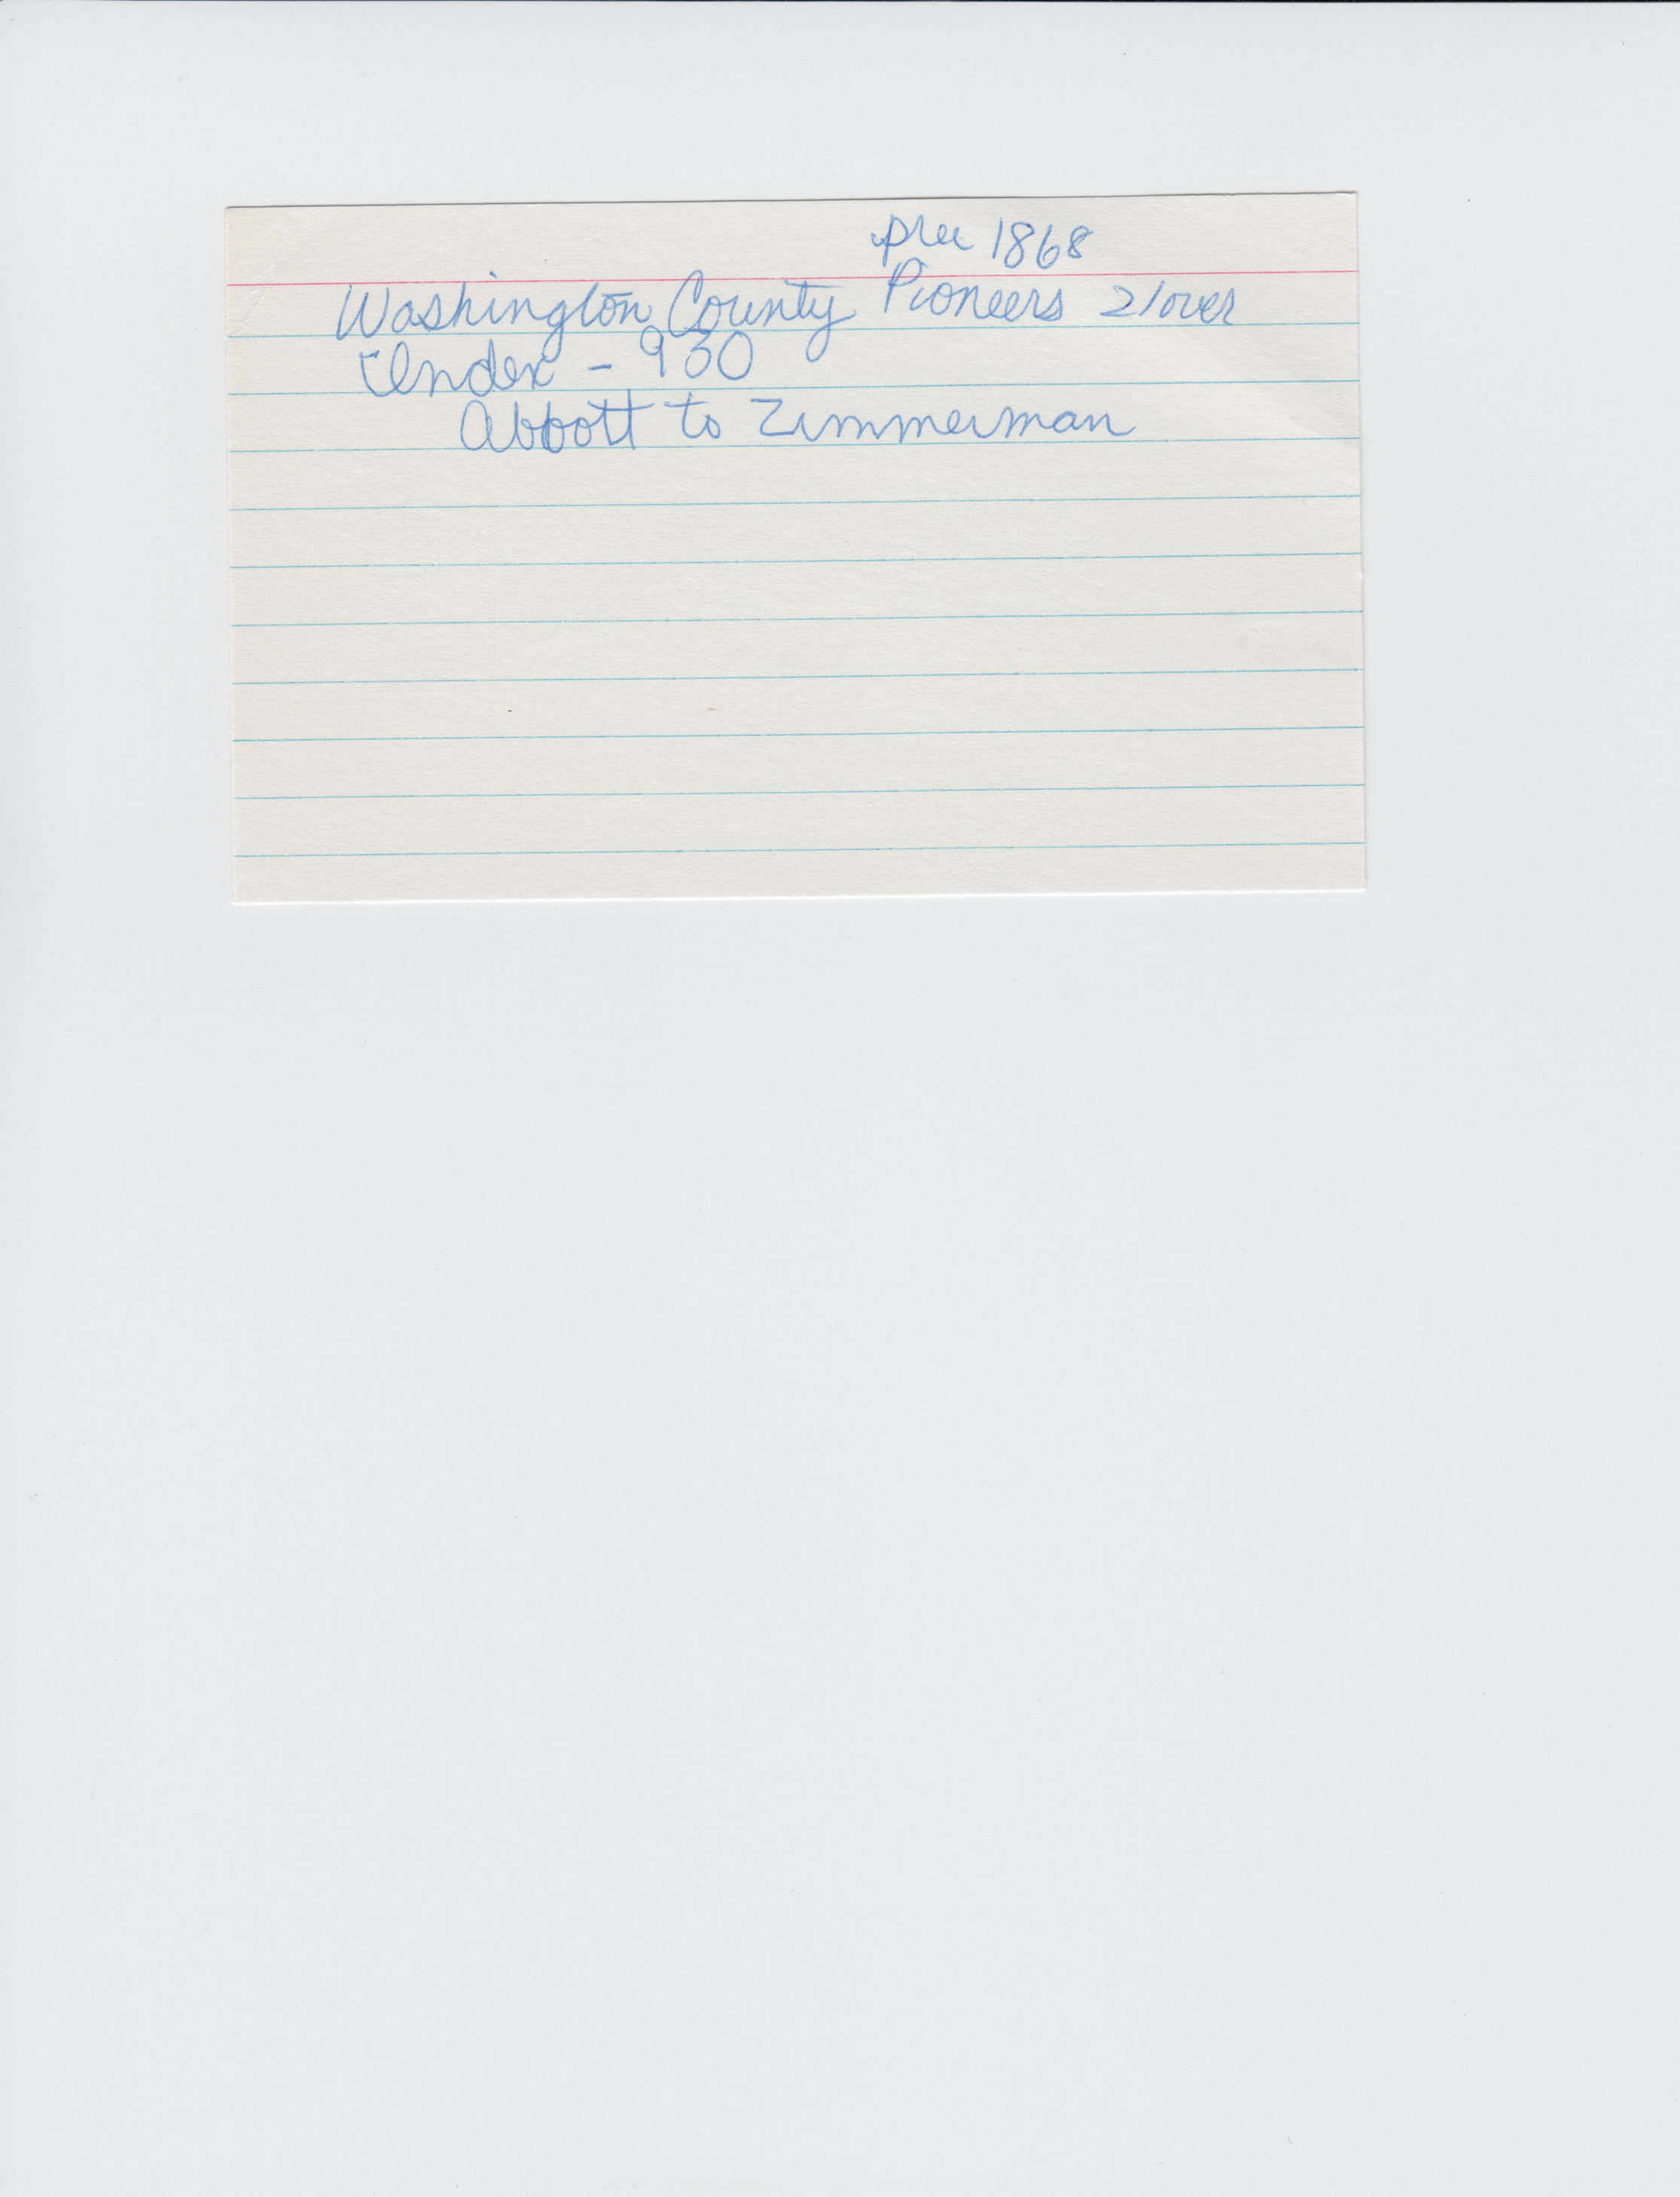 pre 1868
Washington County Pioneers 2/over
Index - 930
Abbott to Zimmerman